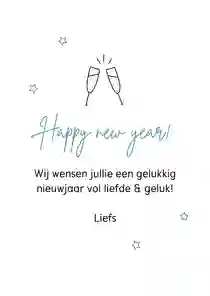 Happy new year!
Wij wensen jullie een gelukkig
nieuwjaar vol liefde & geluk!
Liefs